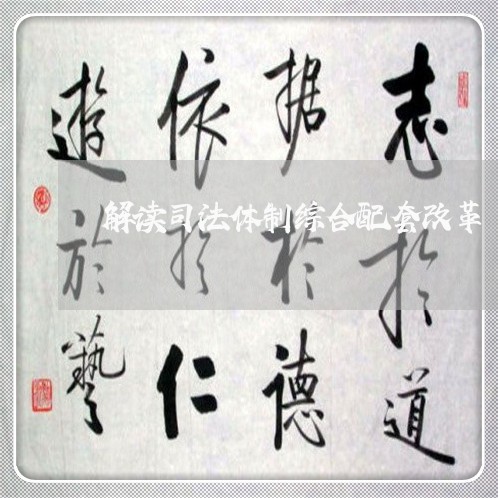 志於道
据於德
依於仁
遊於藝
解读司法体制综合配套改革